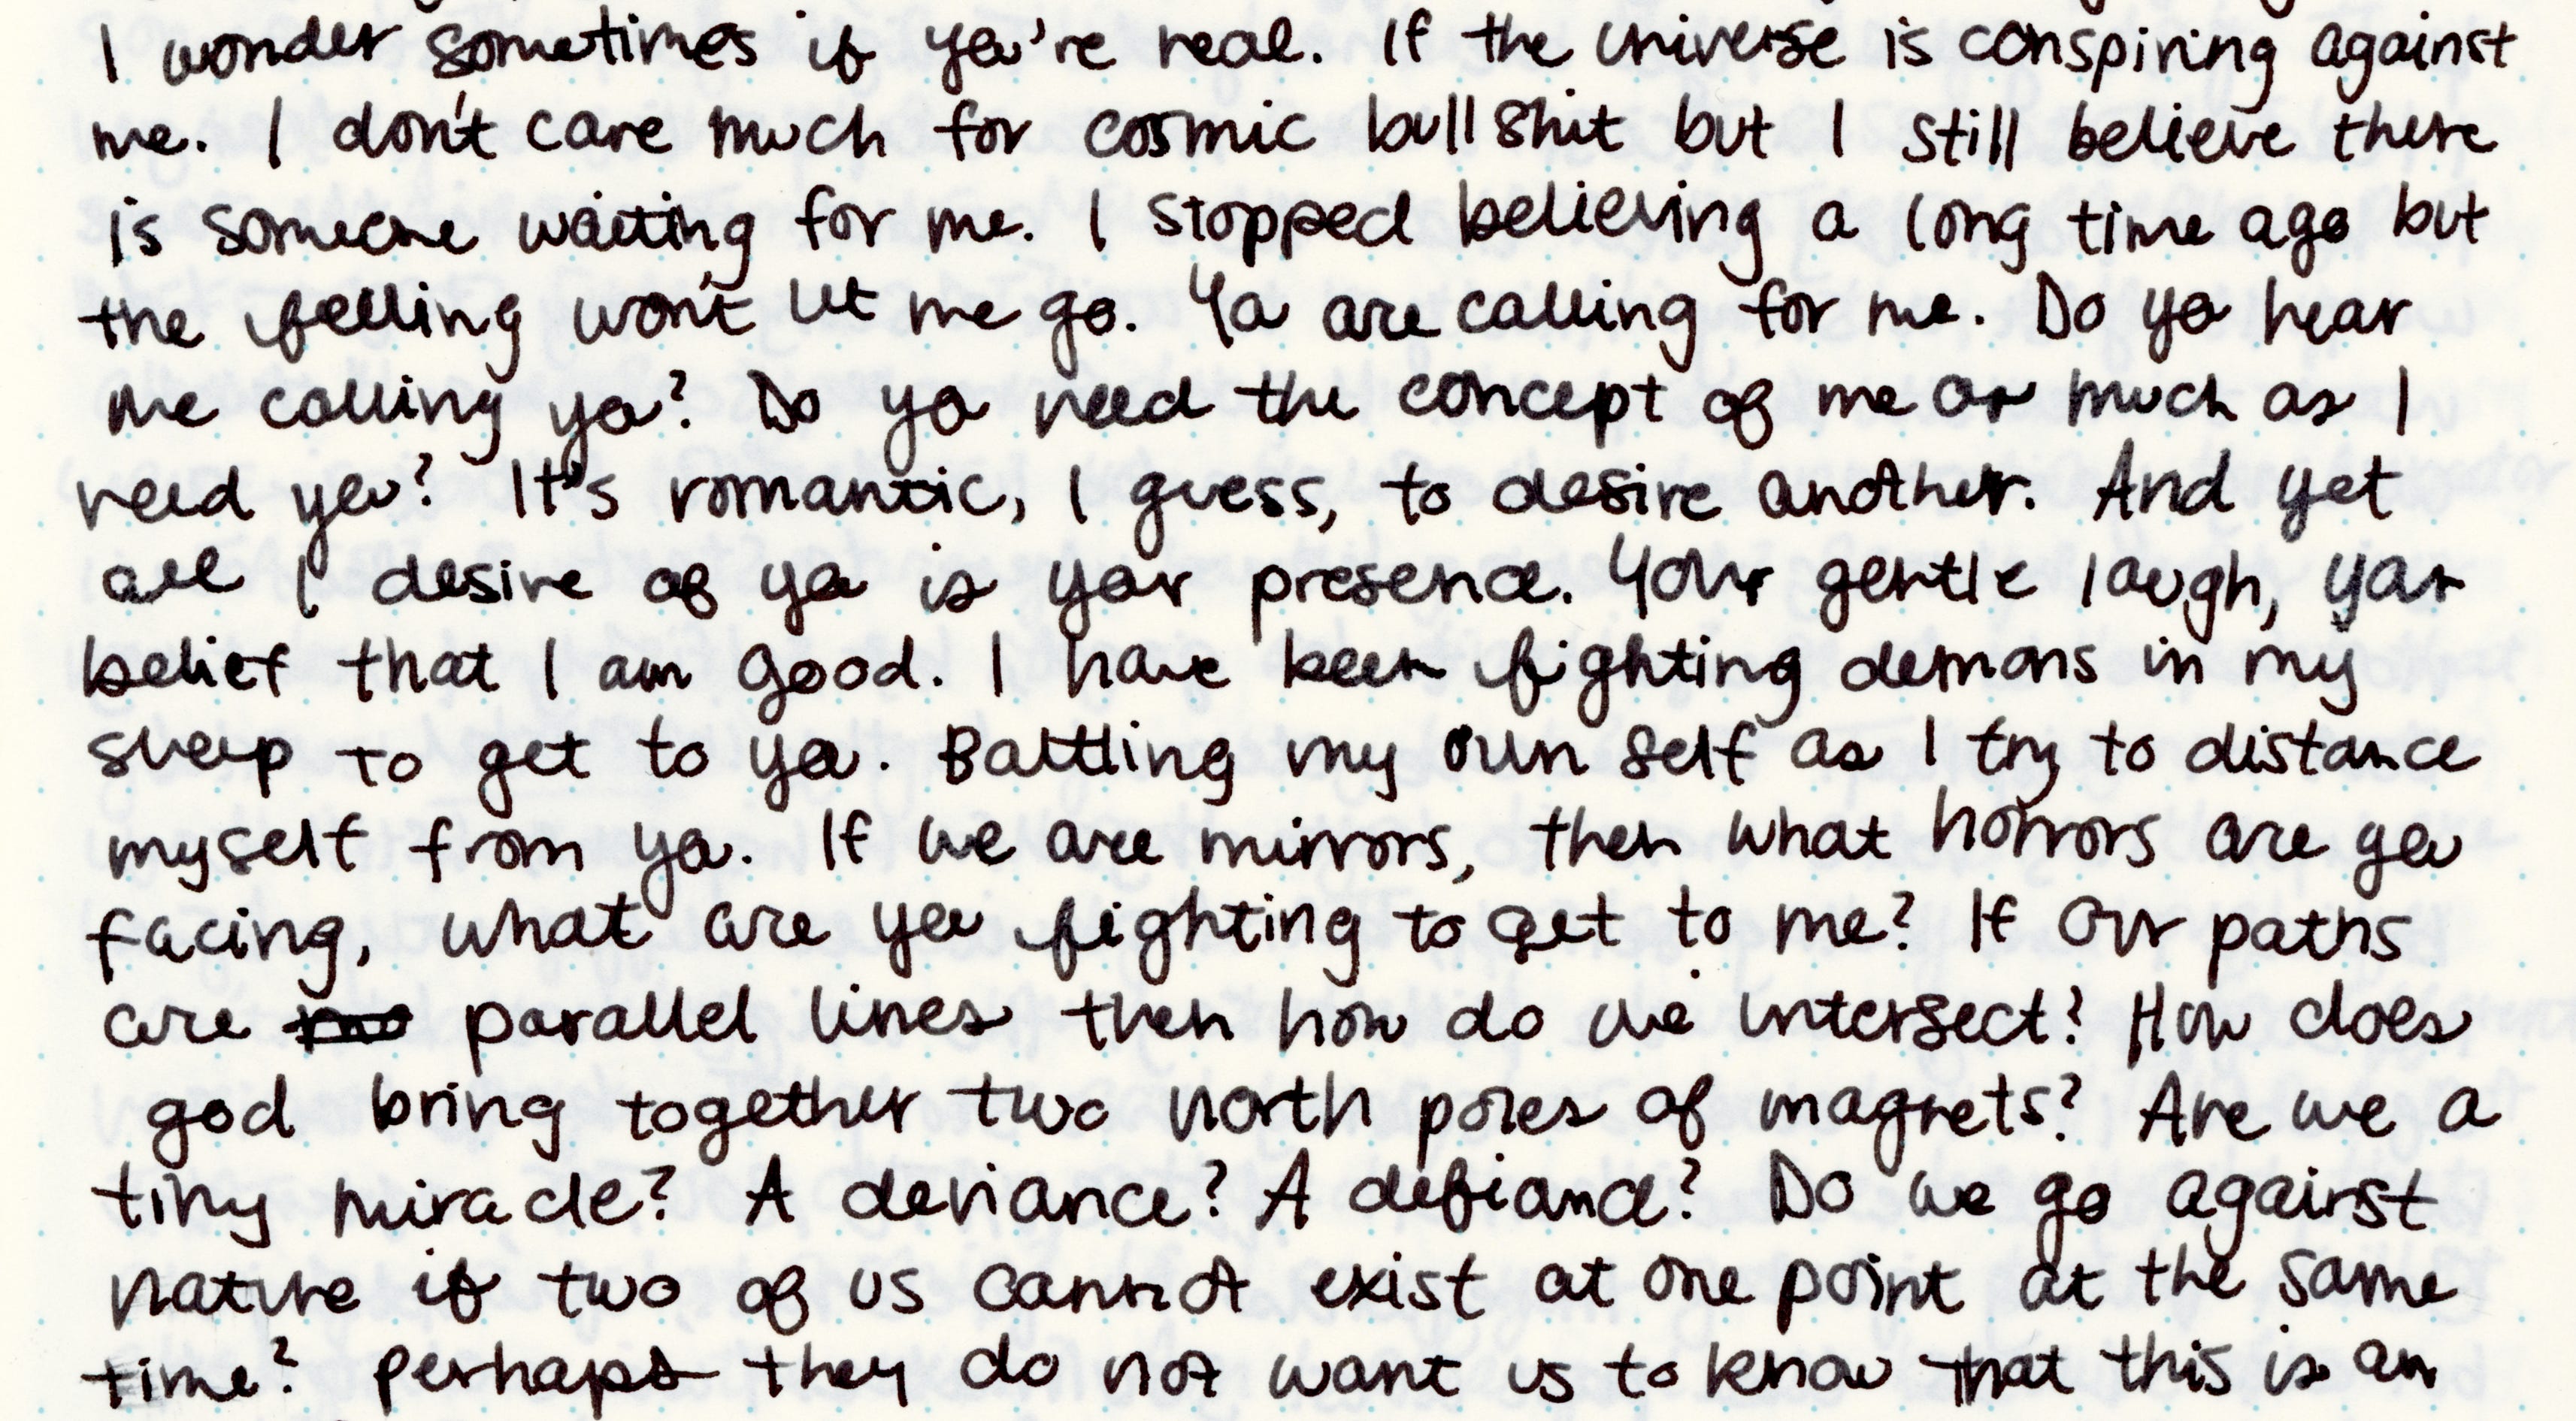 I wonder sometimes if you're real. If the universe is conspiring against
me. I don't care much for cosmic bullshit but I still believe there
is someone waiting for me. I stopped believing a long time ago but
the feeling won't let me go. You are calling for me. Do you hear
me calling you? Do you need the concept of me as much as I
need you? It's romantic, I guess, to desire another. And yet
all I desire of you is your presence. Your gentle laugh, your
belief that I am good. I have been fighting demons in my
sleep to get to you. Battling my own self as I try to distance
myself from you. If we are mirrors, then what horrors are you
facing, what are you fighting to get to me? If our paths
are parallel lines then how do we intersect? How does
god bring together two north poles of magnets? Are we a
tiny miracle? A deviance? A defiance? Do we go against
nature if two of us cannot exist at one point at the same
time? perhaps they do not want us to know that this is an